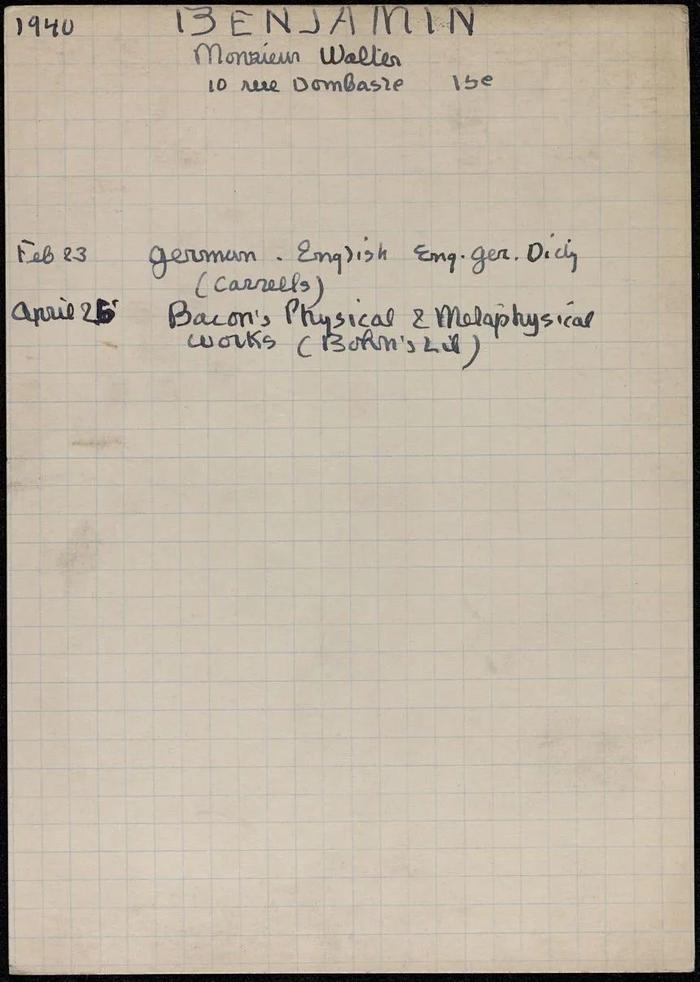 1940 BENJAMIN
Monsieur Walter
10 rue Dombasle 15e
Feb 23 German - English Eng. Ger. Dicty
(Cassells)
April 25 Bacon's Physical & Metaphysical
works (Bohn's Lib)